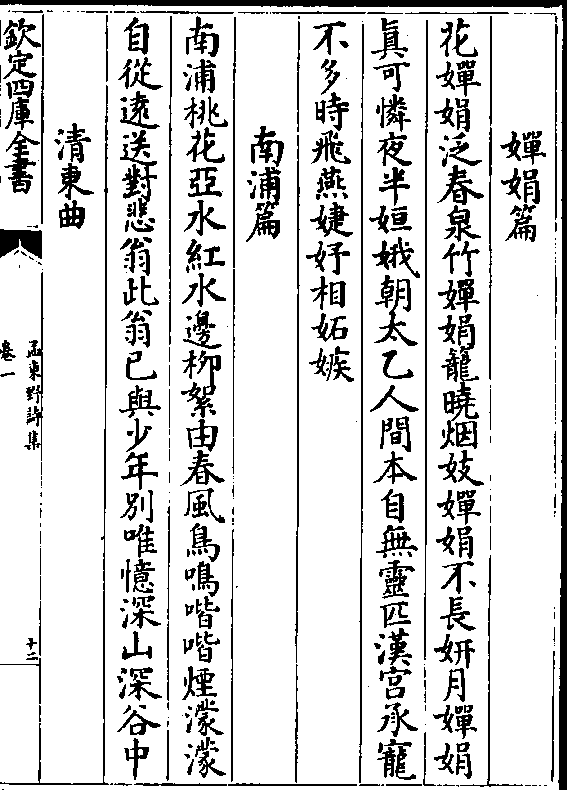 嬋娟篇
花嬋娟泛春泉竹嬋娟籠曉烟妓嬋娟不長妍月嬋娟
真可憐夜半姮娥朝太乙人間本自無靈匹漢宮承寵
不多時飛燕婕妤相妬嫉
南浦篇
南浦桃花亞水紅水邊柳絮由春風鳥鳴喈喈煙濛濛
自從遠送對悲翁此翁已與少年別唯憶深山深谷中
清東曲
欽定四庫全書
孟東野詩集
卷一
十二